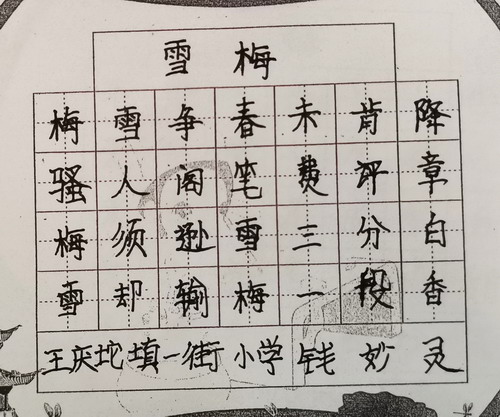 雪梅
梅雪争春未肯降
骚人阁笔费评章
梅须逊雪三分白
雪却输梅一段香
王庆坨填一街小学 钱妙灵